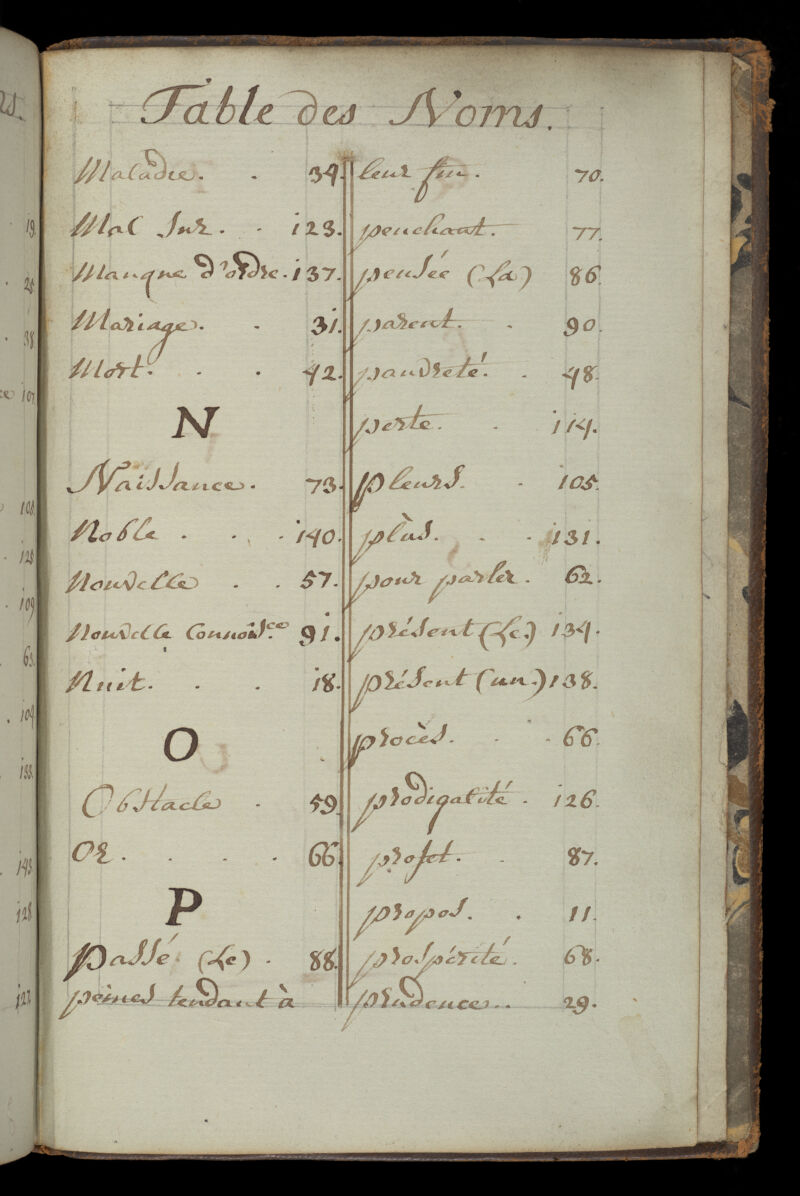 Table des Noms.
Maladie. . 34.
Mal Sur. . 123.
Manque d'ordre. 137.
Mariage. . 31.
Mort. . . 42.
N
Naissance. 73.
Noble . . . 140.
Nouvelle . . 57.
Nouvelle Connoisce. 91.
Nuit. . . 18.
O
Obstacle . 59.
Or. . . . 66.
P
Passé (Le) . 88.
peines tendant à
leur fin. 70.
penchant. 77.
pensée (La) 86.
parent. . 90.
pauvreté. . 48.
perte. . 114.
pleurs. . 105.
plùs. . . 131.
pour parler. 62.
présent (Le.) 134.
présent (un.) 138.
procès. . . 66.
prodigalité . 126.
projet. . 87.
propos. . 11.
prospérité. 68.
prudence. . 29.
19.
25.
38
107
108.
128
109
63.
104
133.
143
128
122